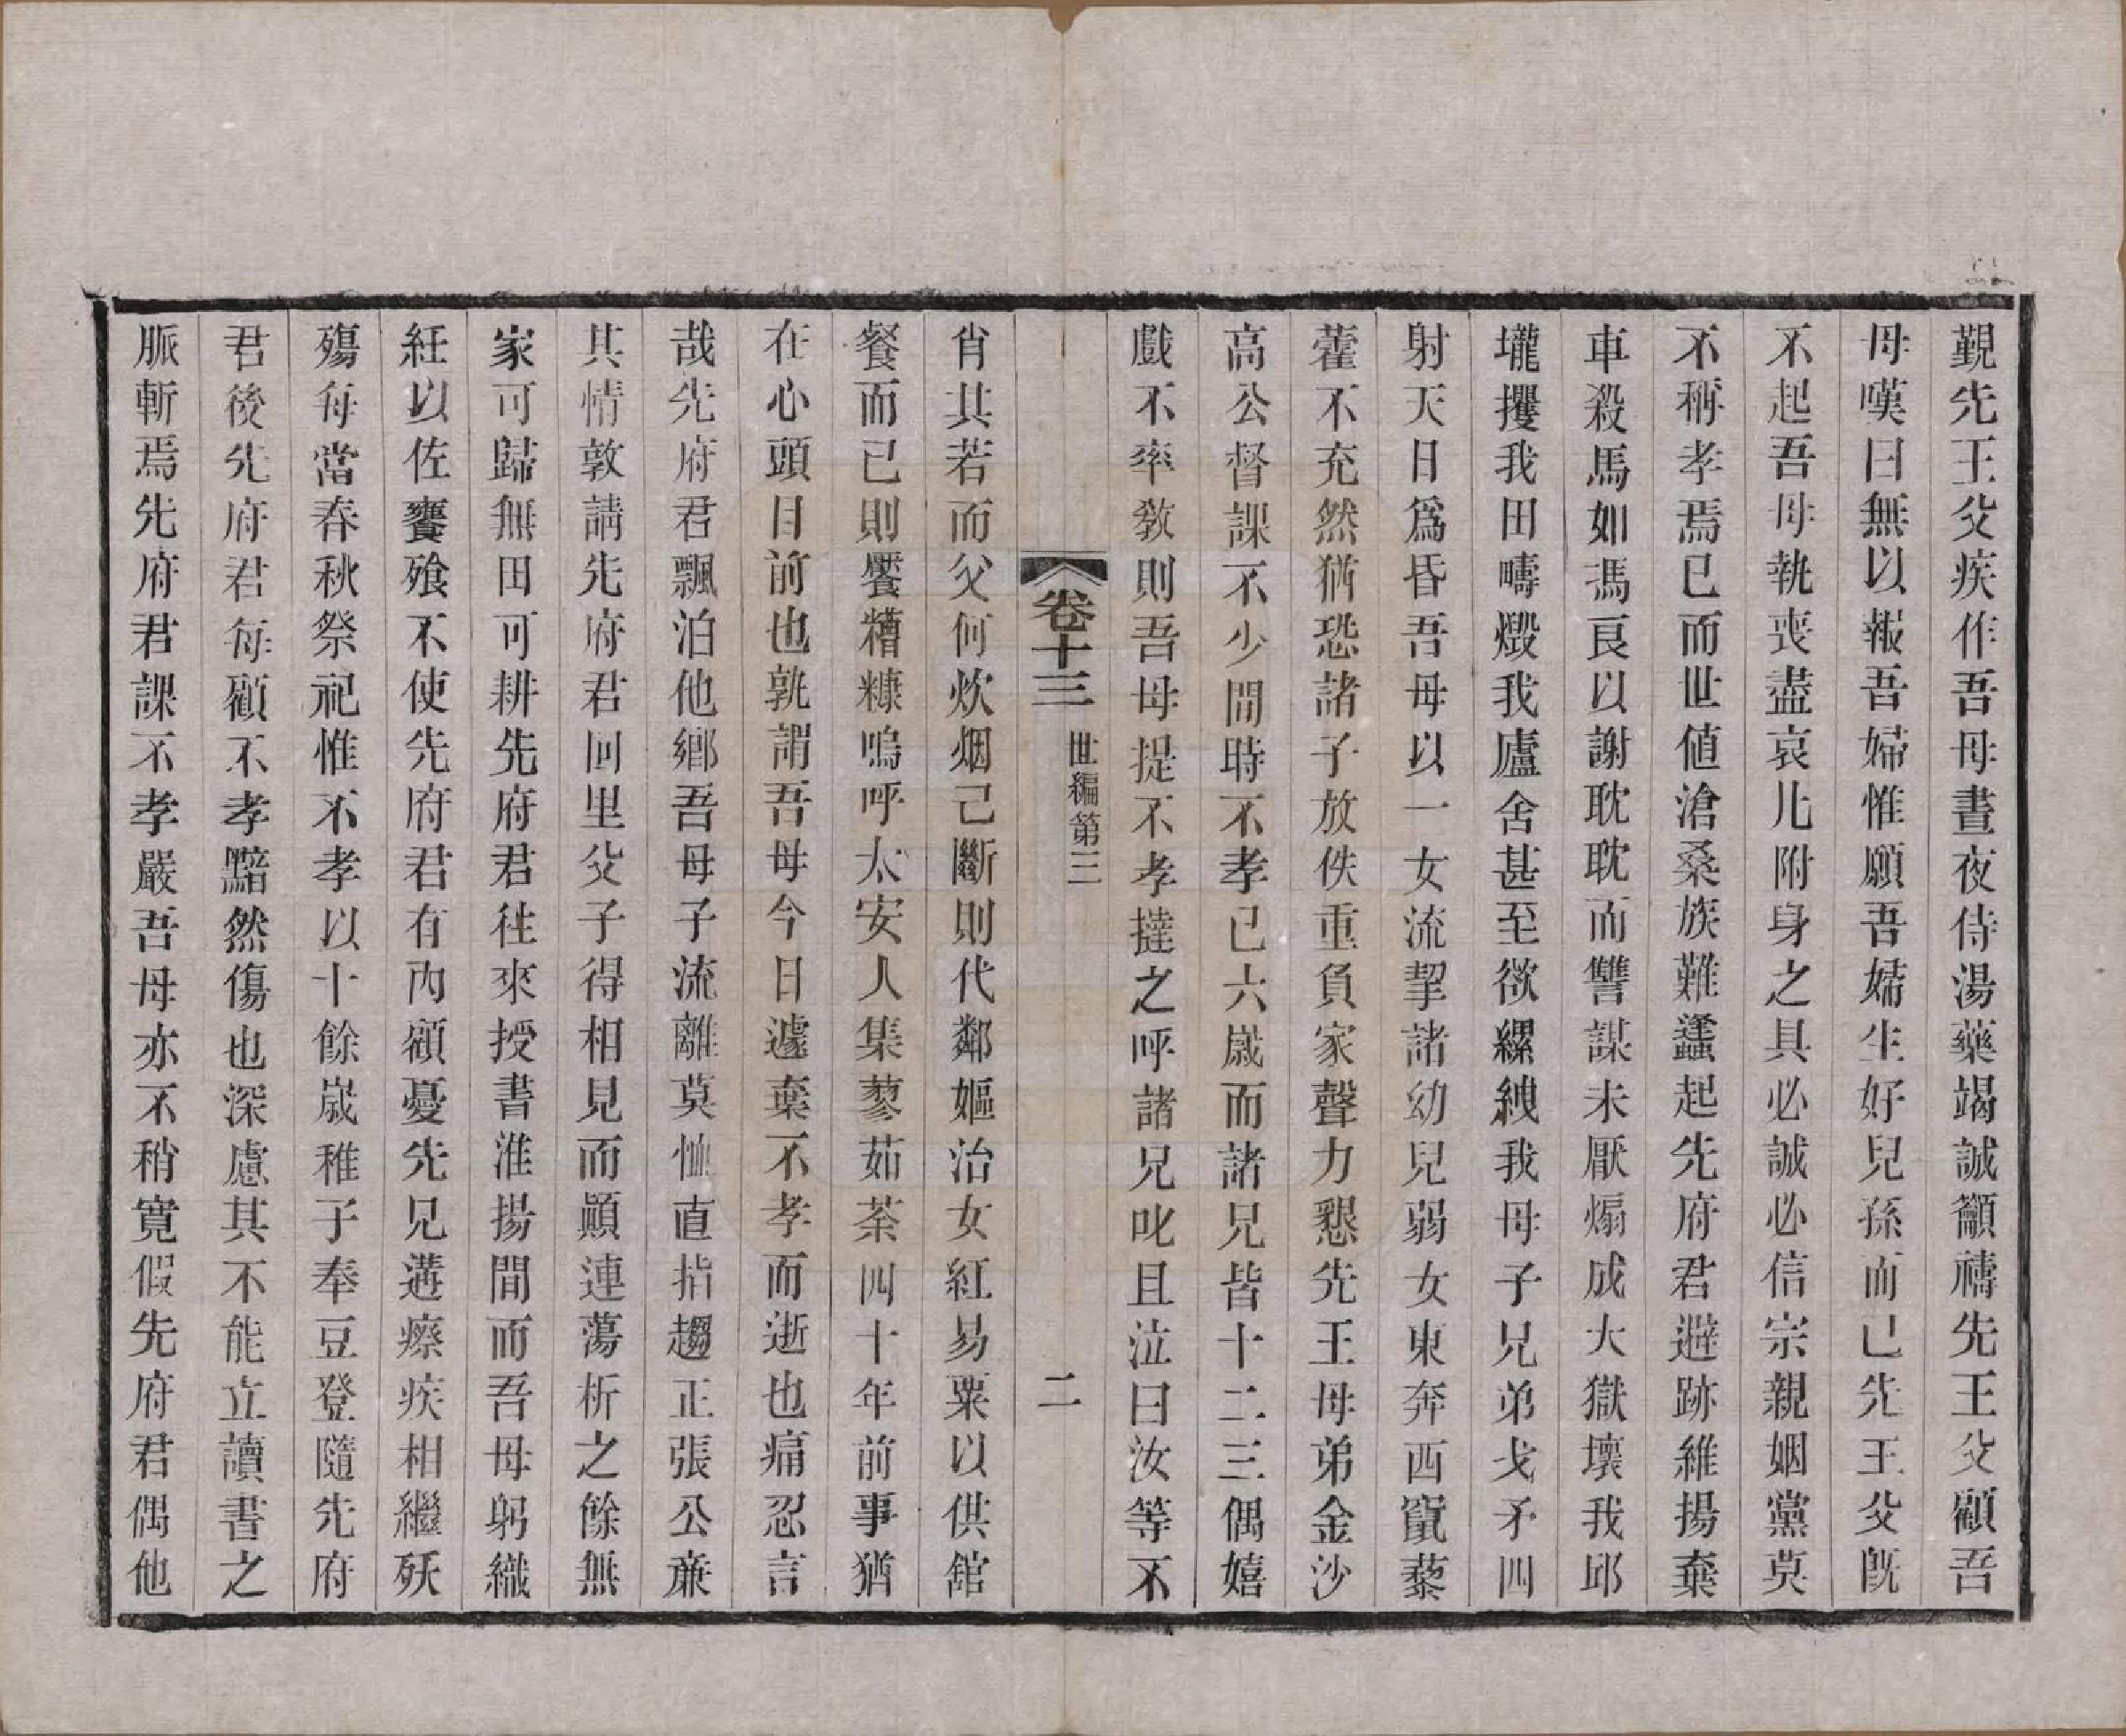 觐先王父疾作吾母晝夜侍湯藥竭誠籲禱先王父顧吾
母嘆曰無以報吾婦惟願吾婦生好兒孫而已先王父旣
不起吾母執喪盡哀凡附身之具必誠必信宗親姻黨莫
不稱孝焉已而世値滄桑族難蠭起先府君避跡維揚棄
車殺馬如馮良以謝耽耽而讐謀未厭煽成大獄壞我邱
壠攫我田疇燬我廬舍甚至欲縲絏我母子兄弟戈矛四
射天日爲昏吾母以一女流挈諸幼兒弱女東奔西竄藜
藿不充然猶恐諸子放佚重負家聲力懇先王母弟金沙
高公督課不少間時不孝已六歲而諸兄皆十二三偶嬉
戲不率敎則吾母提不孝撻之呼諸兄叱且泣曰汝等不
卷十三 世編第三 二
肖其若而父何炊烟己斷則代鄰嫗治女紅易粟以供舘
餐而已則饜糟糠嗚呼太安人集蓼茹荼四十年前事猶
在心頭目前也孰謂吾母今日遽棄不孝而逝也痛忍言
哉先府君飄泊他鄕吾母子流離莫恤直指趨正張公亷
其情敦請先府君回里父子得相見而顚連蕩析之餘無
家可歸無田可耕先府君往來授書淮揚間而吾母躬織
紝以佐饔飱不使先府君有內顧憂先兄遘瘵疾相繼殀
殤每當春秋祭祀惟不孝以十餘歲稚子奉豆登隨先府
君後先府君每顧不孝黯然傷也深慮其不能立讀書之
脈斬焉先府君課不孝嚴吾母亦不稍寬假先府君偶他